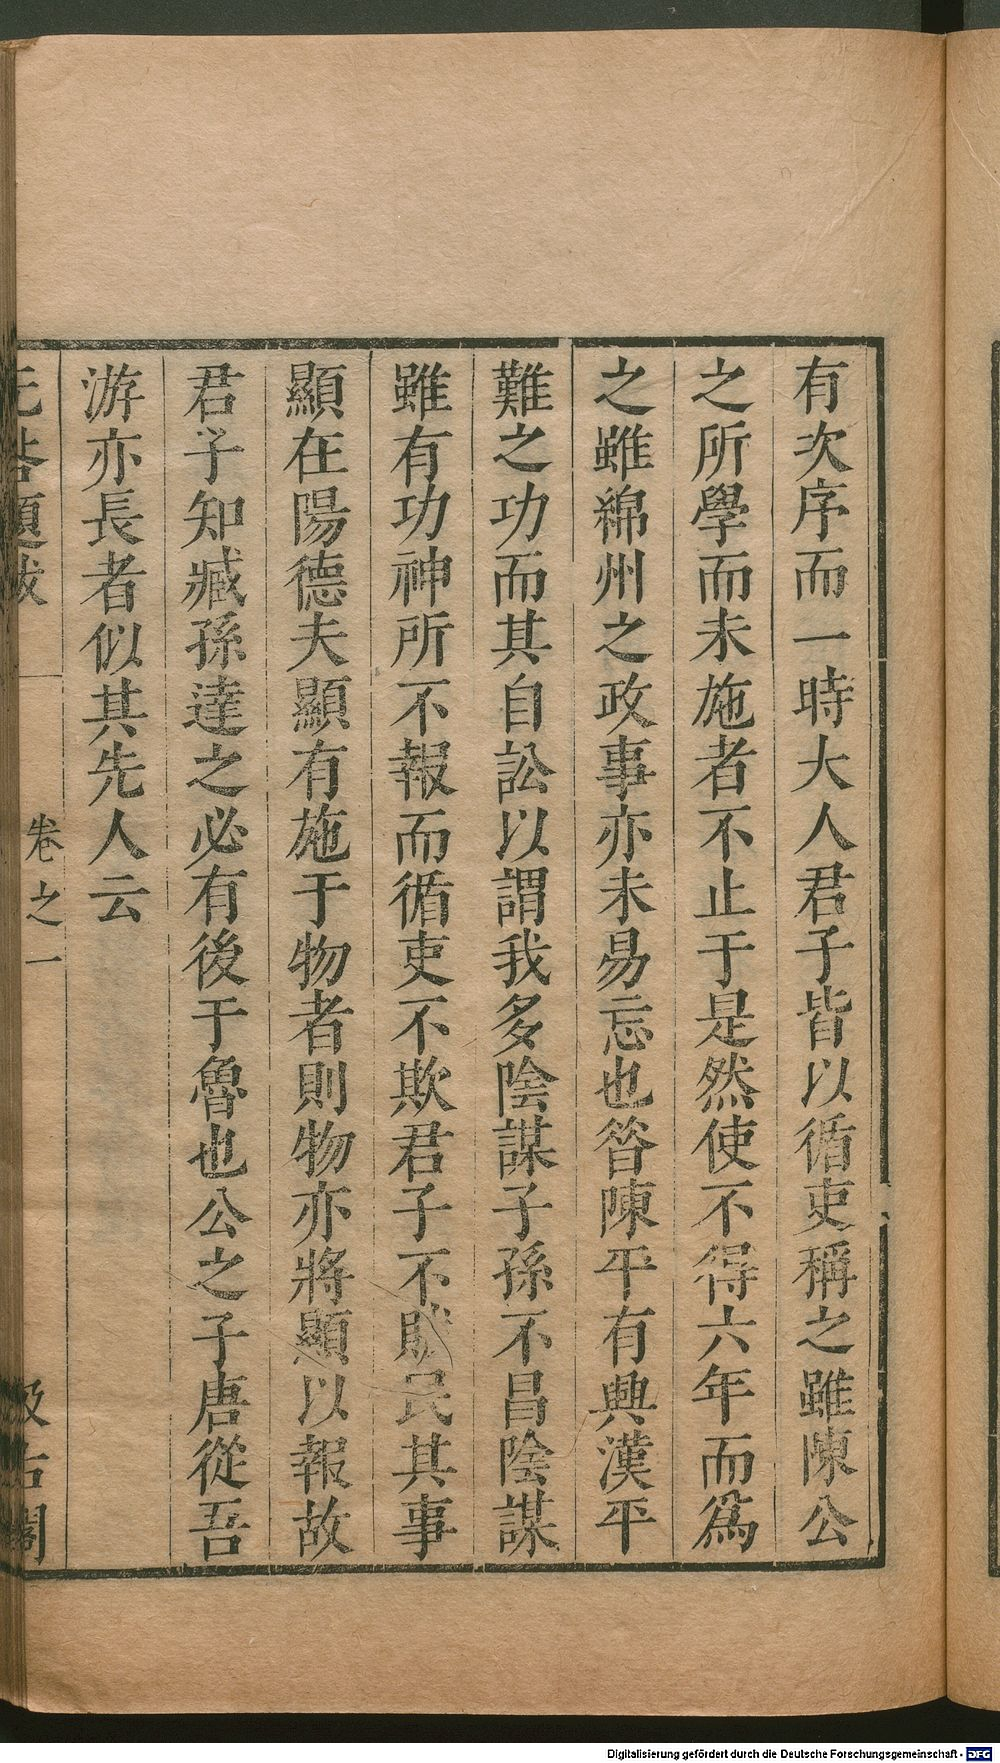 有次序而一時大人君子皆以循吏稱之雖陳公
之所學而未施者不止于是然使不得六年而爲
之雖綿州之政事亦未易忘也昝陳平有興漢平
難之功而其自訟以謂我多陰謀子孫不昌陰謀
雖有功神所不報而循吏不欺君子不賊民其事
顯在陽德夫顯有施于物者則物亦將顯以報故
君子知臧孫達之必有後于魯也公之子唐從吾
游亦長者似其先人云
无咎題跋 卷之一 汲古閣
Digitalisierung gefördert durch die Deutsche Forschungsgemeinschaft - DFG